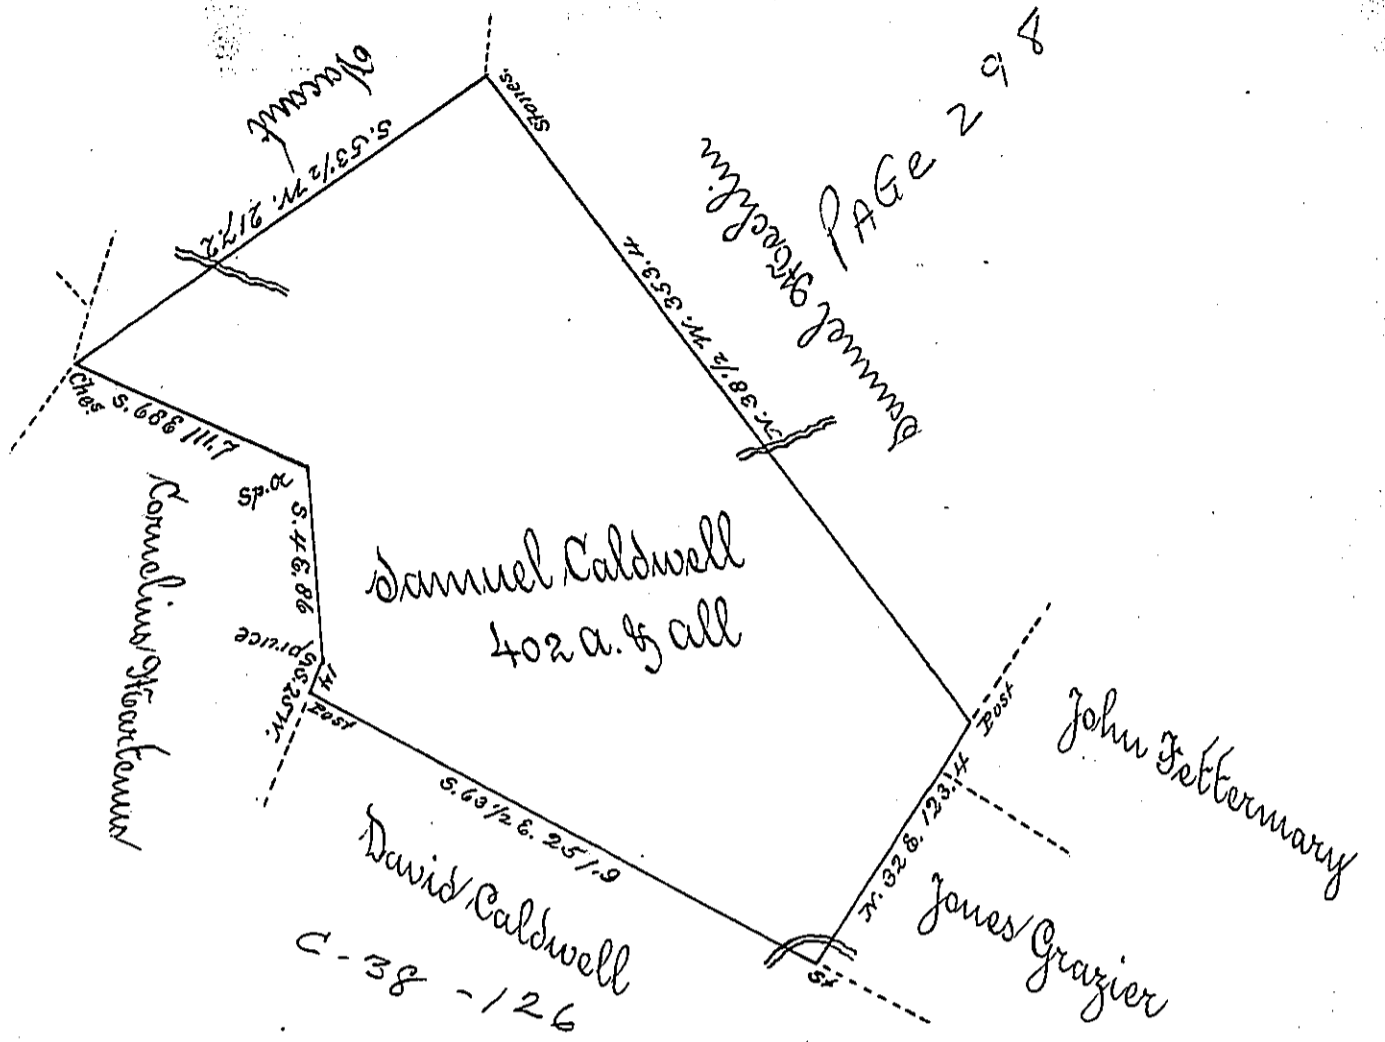 PAGE 298
Vacant
S. 53 1/2 W. 217.2
Stones.
N. 38 1/2 W. 353.4
Ches.
S. 111.7
Sp.
S. 4 E. 86
Spruce
S. 25 W.
14
Post
Cornelius
Samuel Caldwell
402 a. & all
S. 63 1/2 E. 251.9
David Caldwell
C-38-126
St
N. 32 E. 123.4
Post
John Fettermary
Jones Grazier